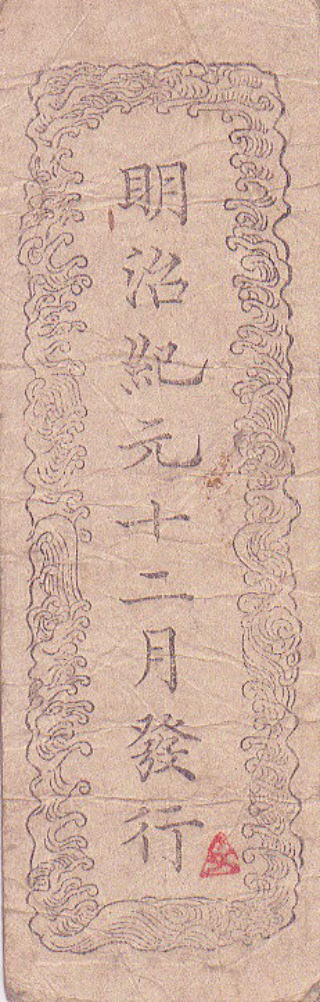 明治紀元十二月發行